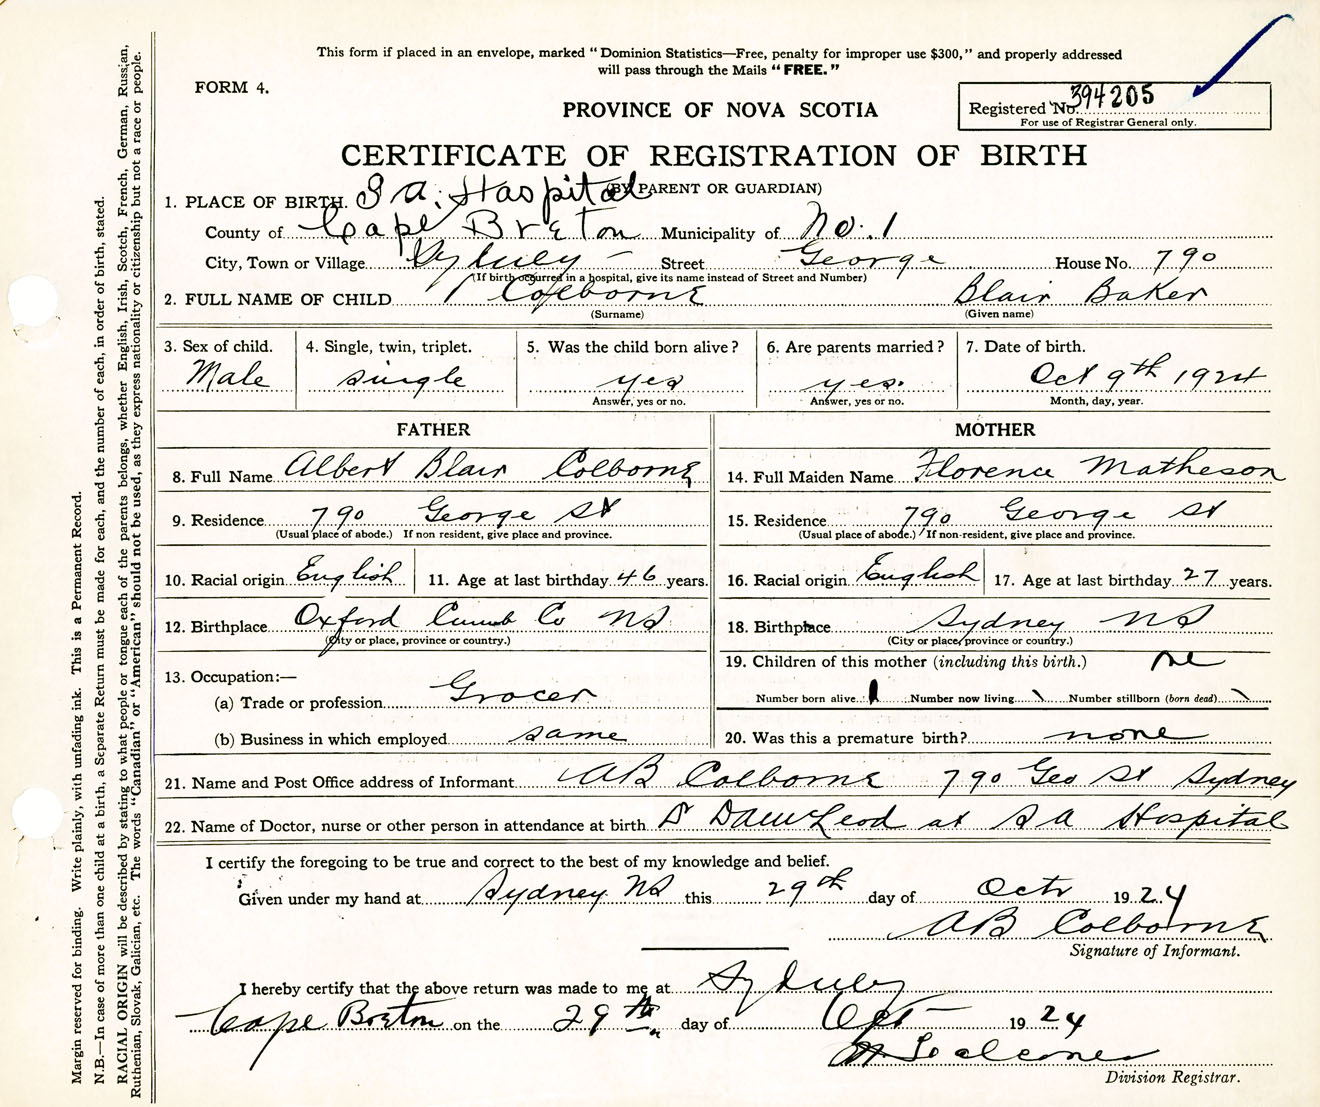 This form if placed in an envelope, marked "Dominion Statistics—Free, penalty for improper use $300," and properly addressed
will pass through the Mails "FREE."
FORM 4.
PROVINCE OF NOVA SCOTIA
Registered No. 394205
For use of Registrar General only.
CERTIFICATE OF REGISTRATION OF BIRTH
(BY PARENT OR GUARDIAN)
1. PLACE OF BIRTH. S a. Hospital
County of Cape Breton Municipality of No. 1
City, Town or Village Sydney – Street George House No. 790
(If birth occurred in a hospital, give its name instead of Street and Number)
2. FULL NAME OF CHILD Colborne Blair Baker
(Surname) (Given name)
3. Sex of child. 4. Single, twin, triplet. 5. Was the child born alive? 6. Are parents married? 7. Date of birth.
Male single yes yes. Oct 9th 1924
Answer, yes or no. Answer, yes or no. Month, day, year.
FATHER MOTHER
8. Full Name Albert Blair Colborne 14. Full Maiden Name Florence Matheson
9. Residence 790 George St 15. Residence 790 George st
(Usual place of abode.) If non resident, give place and province. (Usual place of abode.) If non-resident, give place and province.
10. Racial origin English 11. Age at last birthday 46 years. 16. Racial origin English 17. Age at last birthday 27 years.
12. Birthplace Oxford Cumb Co NS 18. Birthplace Sydney NS
(City or place, province or country.) (City or place, province or country.)
13. Occupation:— 19. Children of this mother (including this birth.) one
(a) Trade or profession Grocer Number born alive 1 Number now living \ Number stillborn (born dead) \
(b) Business in which employed same 20. Was this a premature birth? none
21. Name and Post Office address of Informant AB Colborne 790 Geo St Sydney
22. Name of Doctor, nurse or other person in attendance at birth at S A Hospital
I certify the foregoing to be true and correct to the best of my knowledge and belief.
Given under my hand at Sydney NS this 29th day of Octr 1924
AB Colborne
Signature of Informant.
I hereby certify that the above return was made to me at Sydney
Cape Breton on the 29th day of Oct – 1924
Division Registrar.
Margin reserved for binding. Write plainly, with unfading ink. This is a Permanent Record.
N.B.—In case of more than one child at a birth, a Separate Return must be made for each, and the number of each, in order of birth, stated.
RACIAL ORIGIN will be described by stating to what people or tongue each of the parents belongs, whether English, Irish, Scotch, French, German, Russian,
Ruthenian, Slovak, Galician, etc. The words "Canadian" or "American" should not be used, as they express nationality or citizenship but not a race or people.